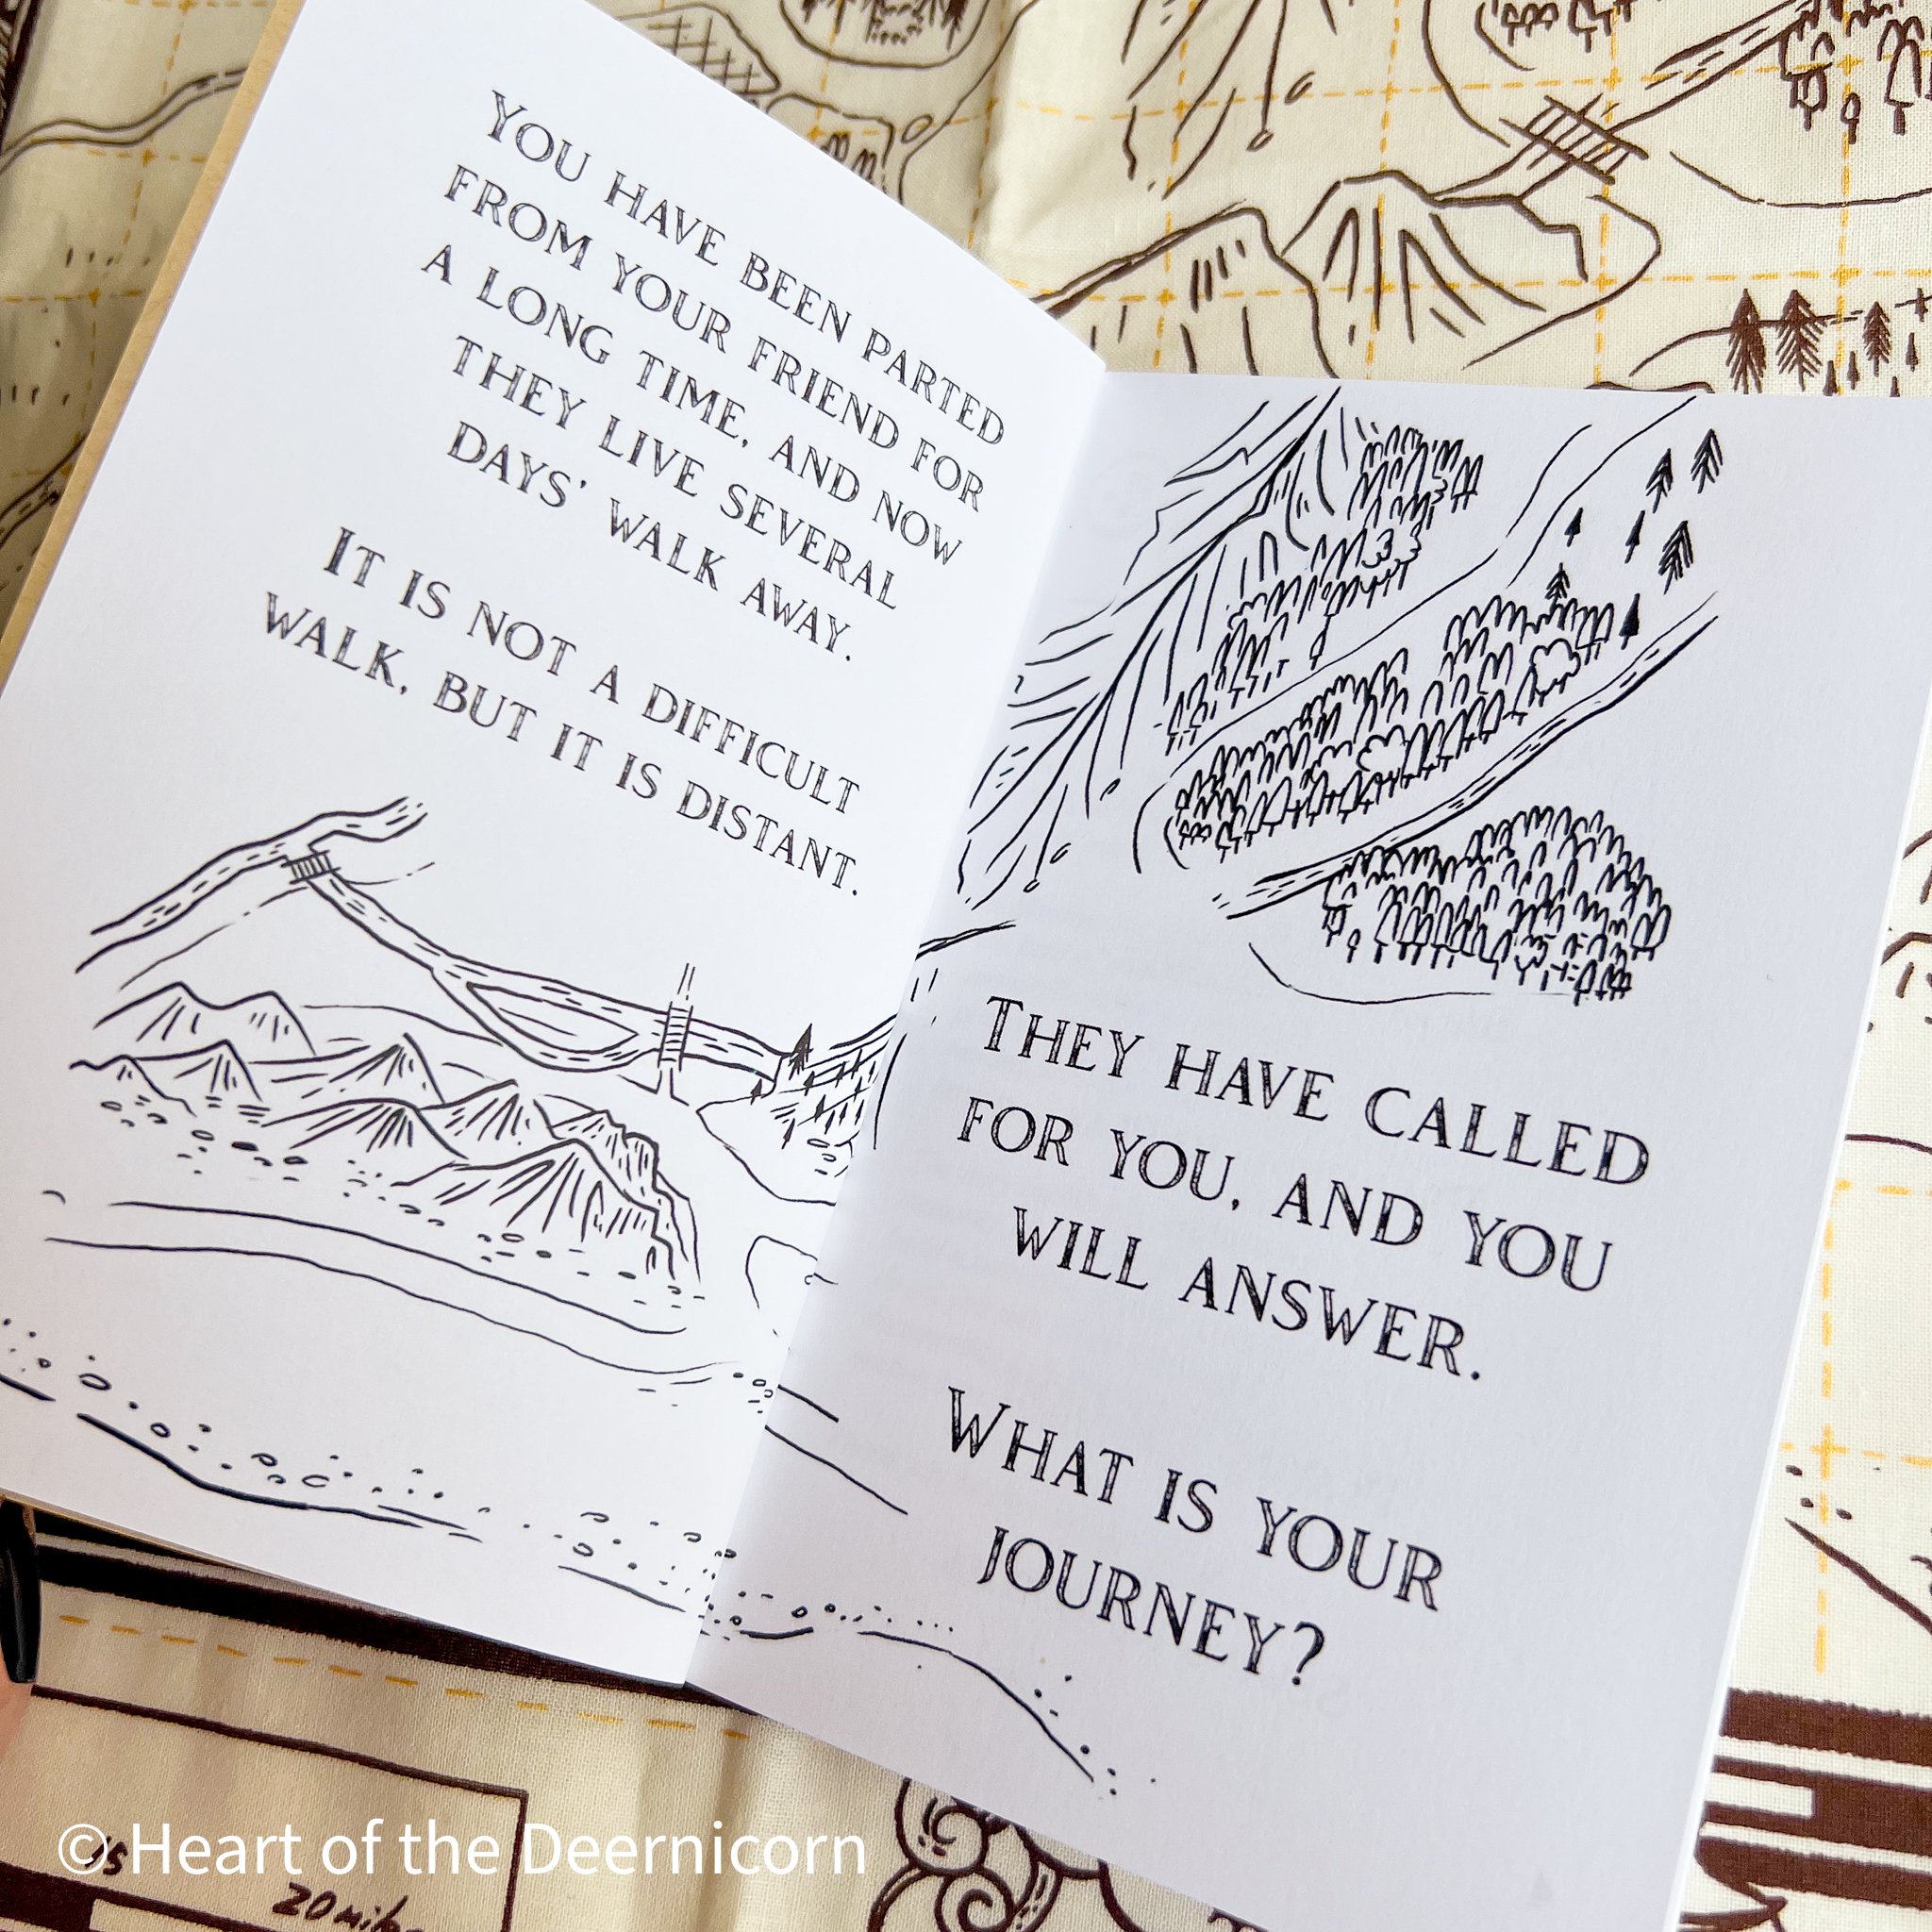 You have been parted
from your friend for
a long time, and now
they live several
days' walk away.
It is not a difficult
walk, but it is distant.
They have called
for you, and you
will answer.
What is your
journey?
15
20 miles
© Heart of the Deernicorn